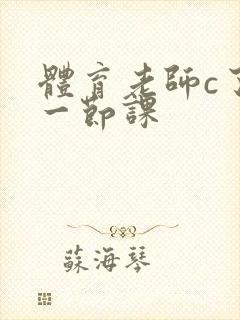 體育老師c了
一節課
蘇海琴